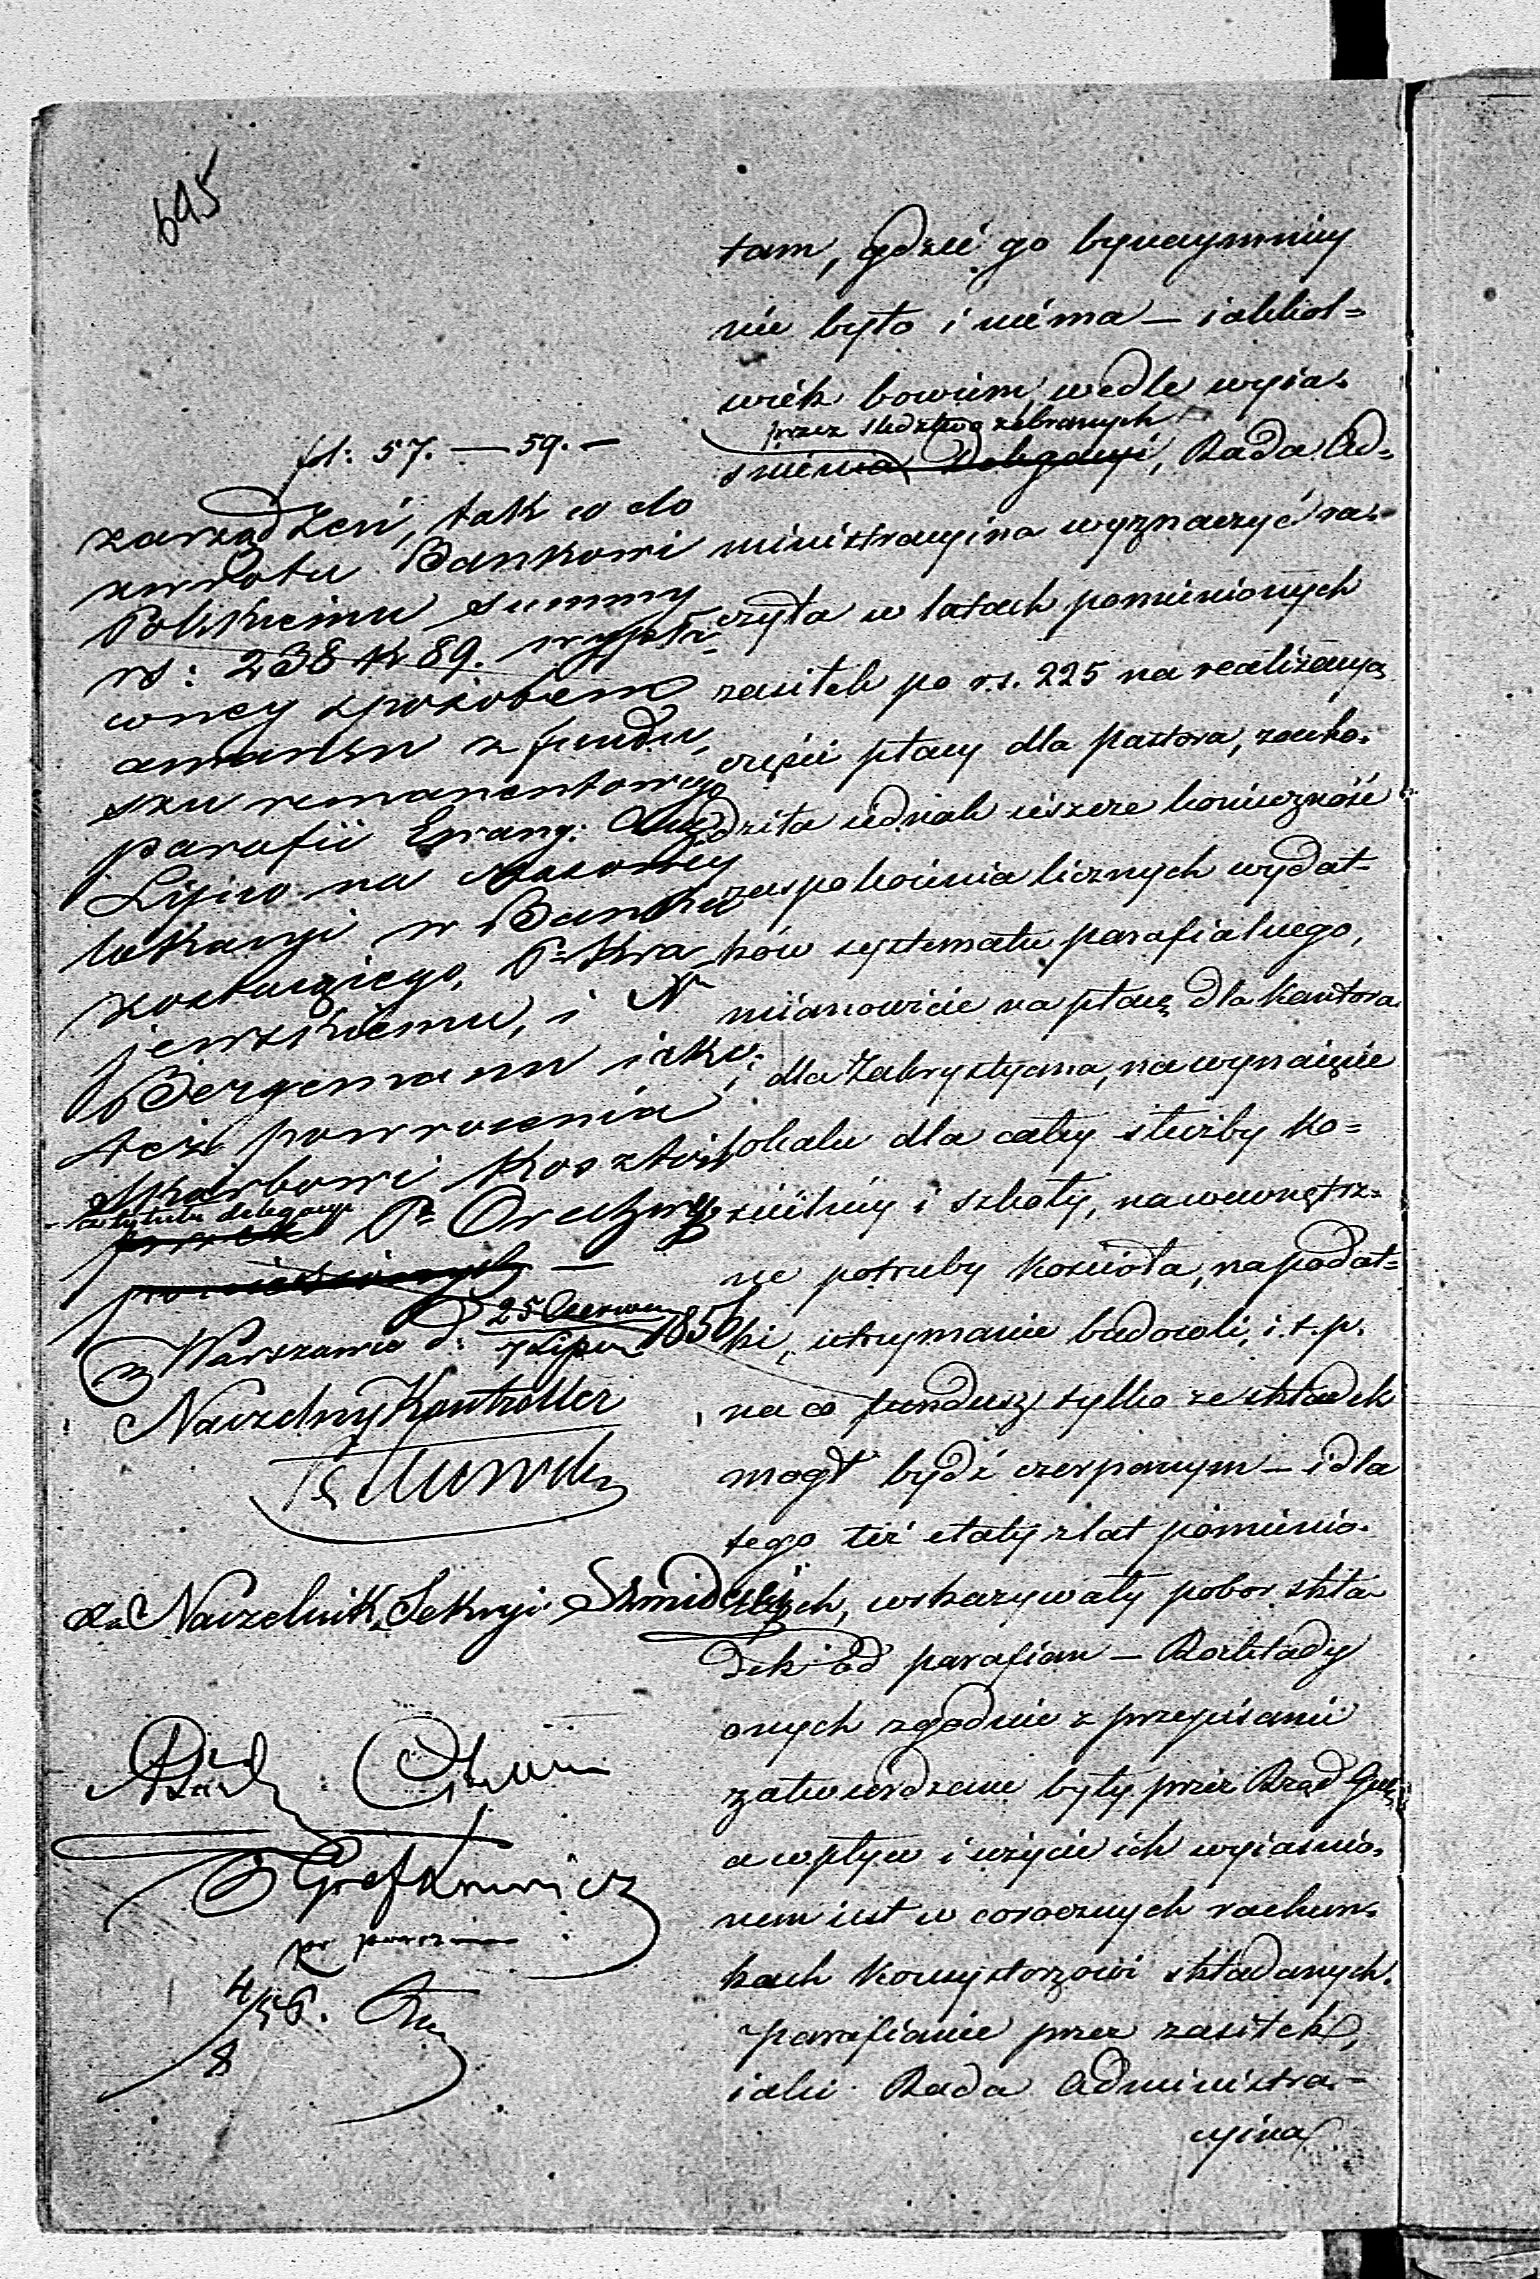 695
fol: 57. — 59. —
zarządzeń, tak co do
zwrotu Bankowi
Polskiemu summy
rs: 238 k 89. wypła-
coney sposobem
awansu z fundu-
szu remanentowego
parafii Ewang: Aug
Lipno na
lokacyi w Banku
zostaiącego, P. Kra
jewskiemu, i N
Bergemann iako
też powrócenia
Skarbowi kosztów
z tytułu delegacyi
P. Orechwy
w Warszawie d: 25 Czerwca / 7 Lipca 1856
Naczelny Kontroller
za Naczelnik Sekcyi
4/8 56.
tam, gdzie go bynaymniey
nie było i niéma — iakkol=
wiék bowiem wedle wyia-
przez śledztwo zebranych
śnienia Delegacyi, Rada Ad-
ministracyina wyznaczyć ra-
czyła w latach pomienionych
zasiłek po r.s. 225 na realizacyą
części płacy dla pastora, zacho-
dziła iednak ieszcze konieczność
zaspokoienia licznych wydat-
ków systematu parafialnego,
mianowicie na płacę dla kantora
dla Zakrystyana, na wynaięcie
lokalu dla całey służby ko=
ścielney i szkoły, na wewnętrz-
ne potrzeby kościoła, na podat=
ki, utrzymanie budowli, i.t.p.
na co fundusz tylko ze składek
mógł bydź czerpanym — i dla
tego też etaty z lat pomienio-
nych, wskazywały pobor skła
dek od parafian — Rozkłady
onych zgodnie z przepisami
zatwierdzane były przez Rząd Gub:
a wpływ i użycie ich wyiaśnio-
nem iest w corocznych rachun-
kach Konsystorzowi składanych.
Parafianie przez zasiłek,
iaki Rada Administra-
cyina